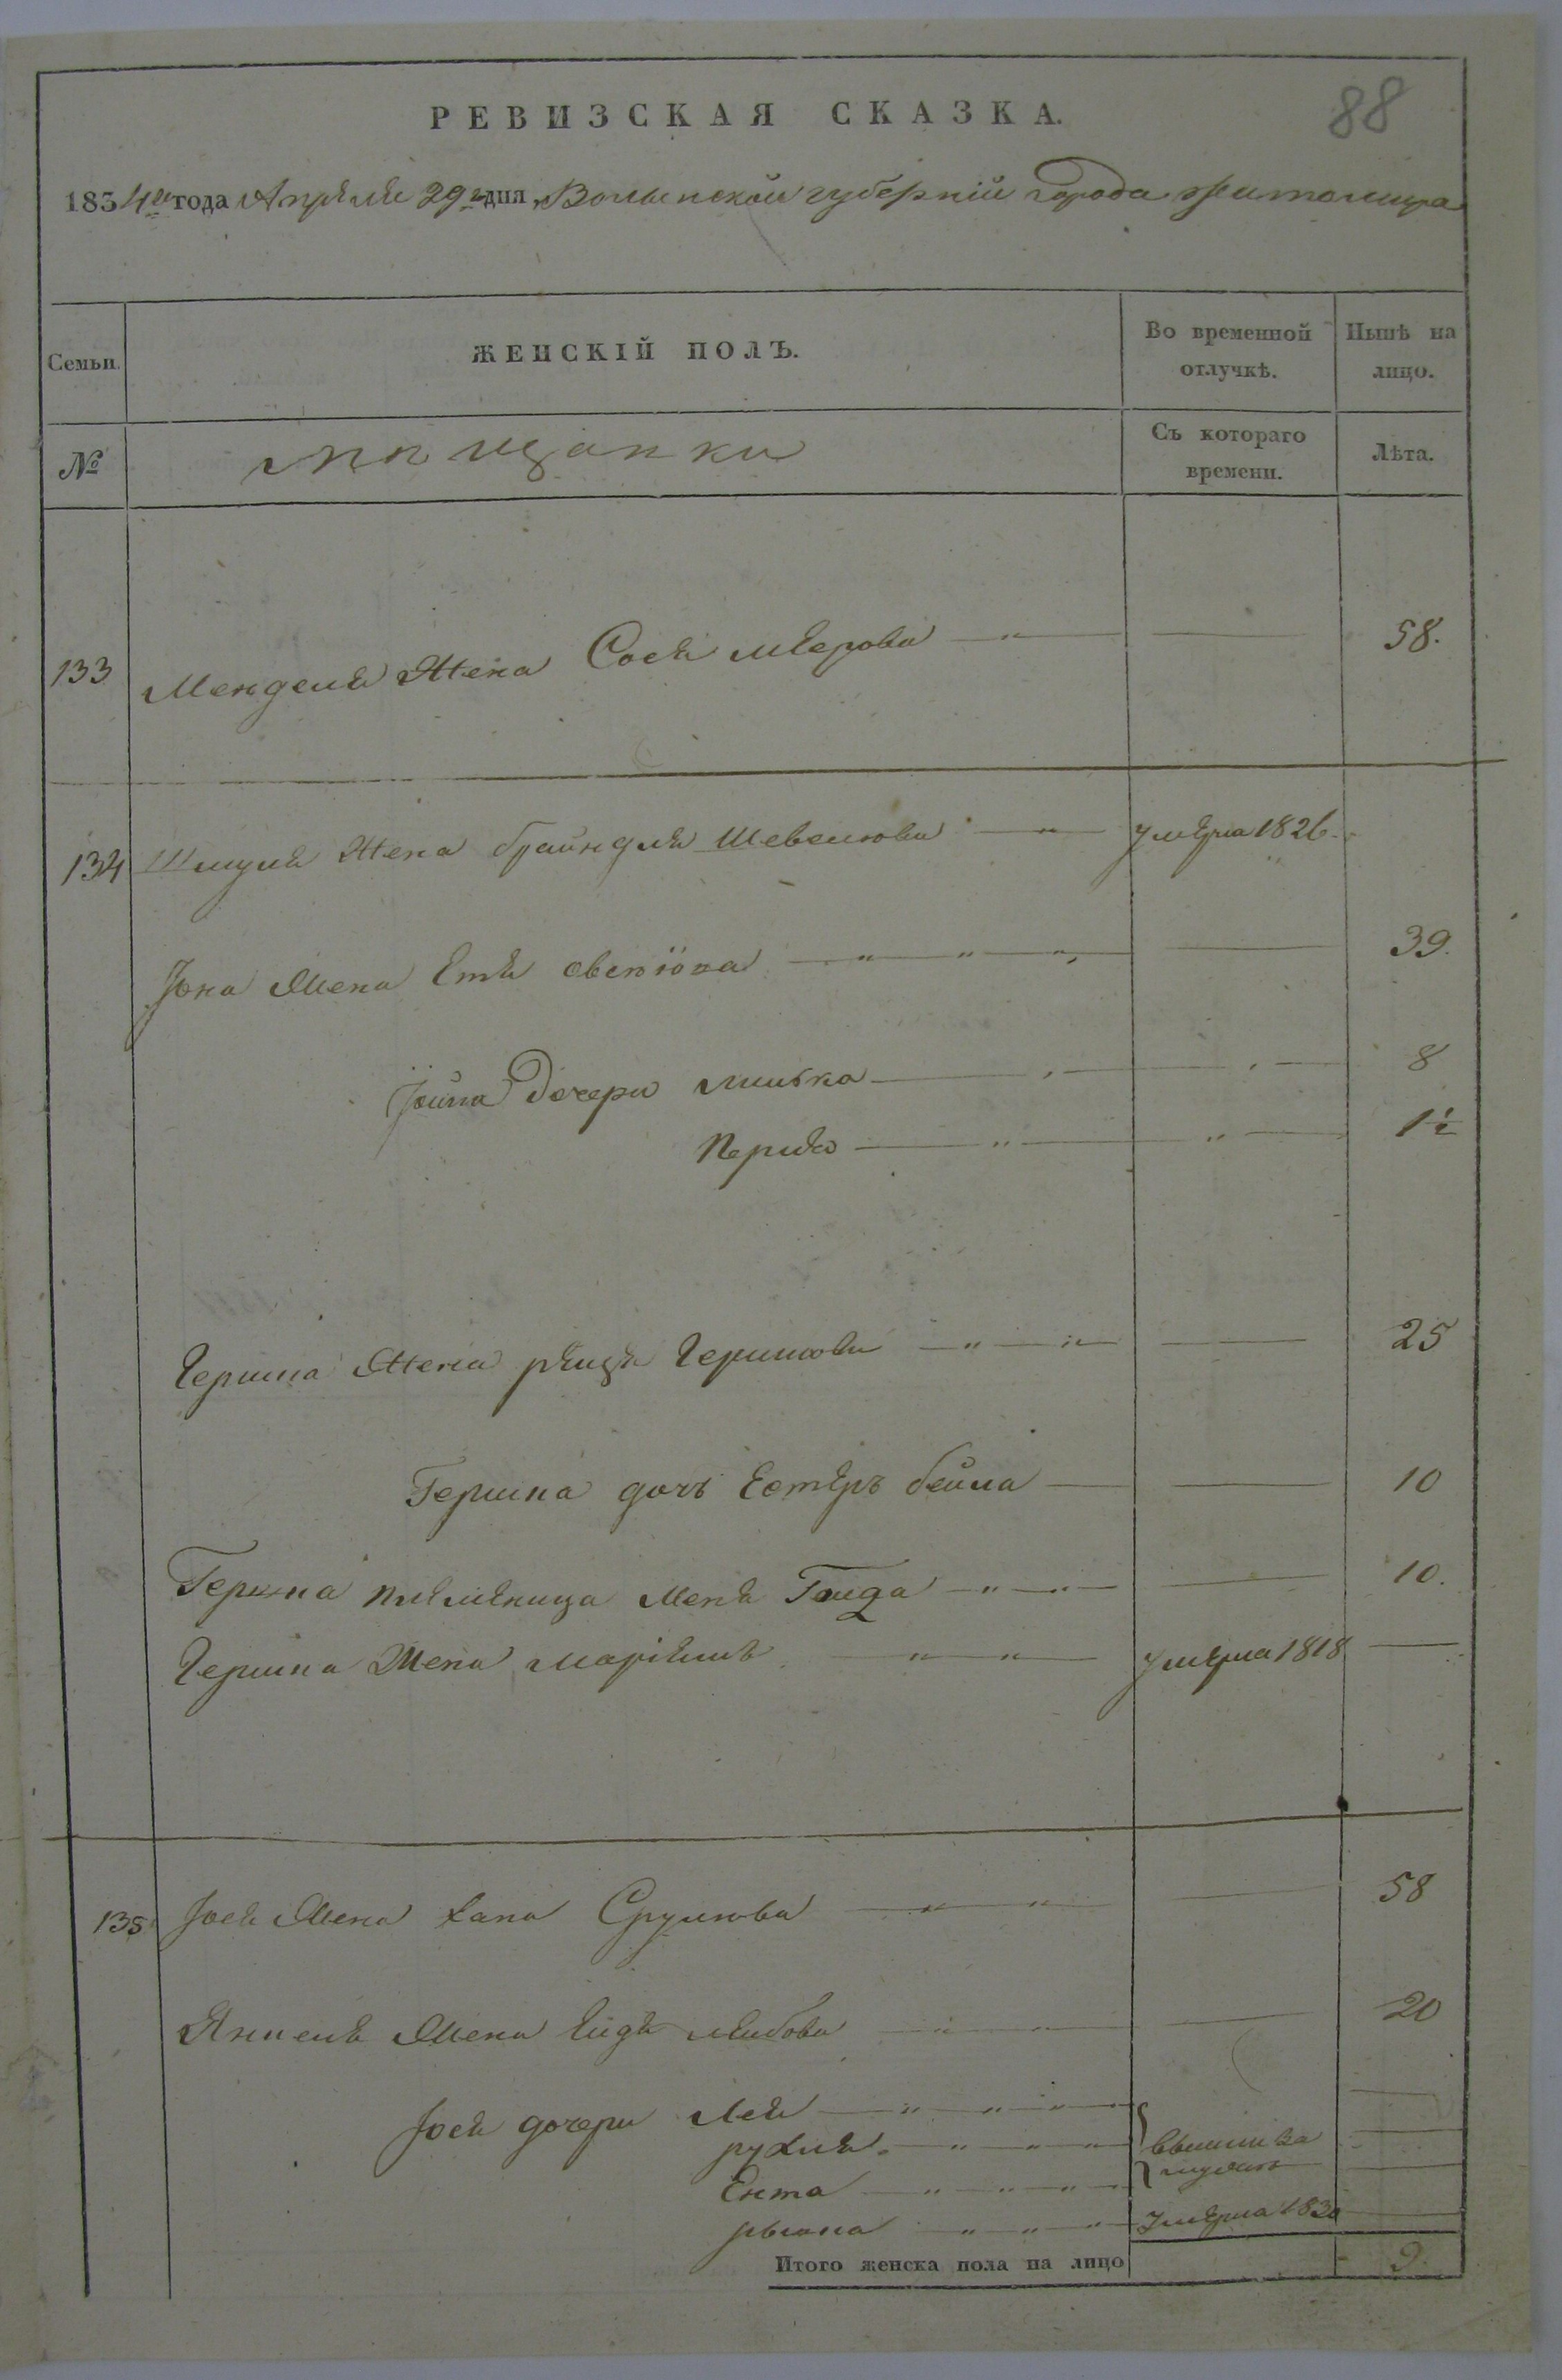 88
РЕВИЗСКАЯ СКАЗКА.
1834го года Апреля 29го дня, Волынской губерніи города Житомира
Семьи. ЖЕНСКІЙ ПОЛЪ. Во временной отлучкѣ. Нынѣ на лицо.
№ мещанки Съ котораго времени. Лѣта.
133 Менделя Жена Сося меерова — " — — 58.
134 Шмуля Жена брайндля Шевелюва — " — умерла 1826.
Іона Жена Етя — " — " — " — — 39.
Іойна Дочери милька — 8
Перля — " — " — 1½
Гершна Жена рейзя Гершкова — " — " — — 25
Гершна дочь Естеръ бейла — — 10
Гершна племеница Меня Голда — " — " — — 10.
Гершна Жена маріямъ — " — " — умерла 1818 —
135 Іося Жена хана Срулюва — " — " — — 58
Янкеля Жена лейбова — " — " — — 20
Іося дочери Лея — " — " — " —
рухля — " — " — " — вышли за
Ента — " — " — " — мужъ
— " — " — " — умерла 1830 —
Итого женска пола на лицо 9.